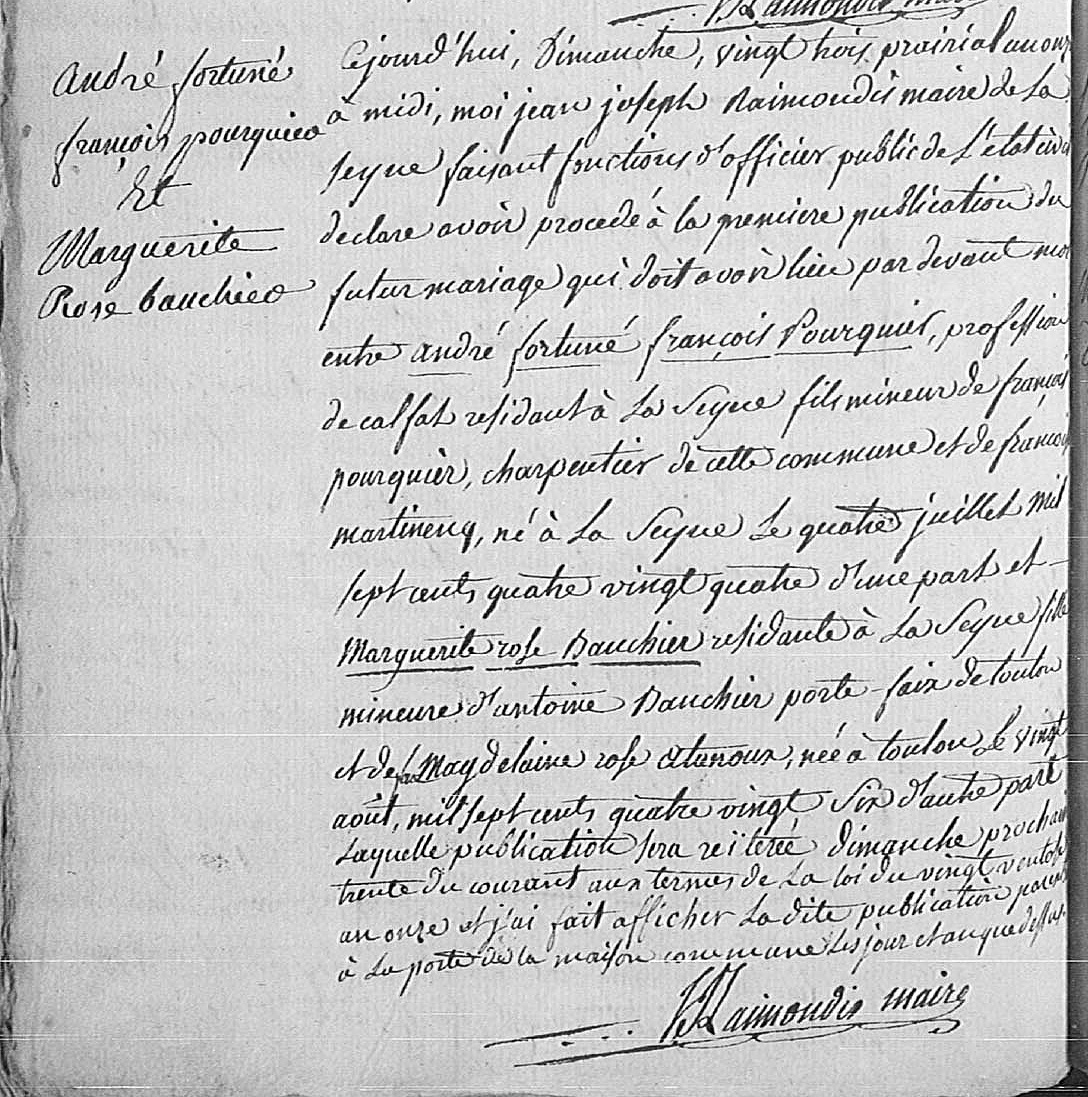 Raimondis maire
andré fortuné
françois pourquier
Et
Marguerite
Rose bauchier
Cejourd'hui, Dimanche, vingt trois prairial an onze
à midi, moi jean joseph Raimondis maire de La
Seyne faisant fonctions d'officier public de L'état civil
declare avoir procedé à la premiere publication du
futur mariage qui doit avoir lieu par devant moi
entre andré fortuné françois Pourquier, profession
de calfat residant à La Seyne fils mineur de françois
pourquier, charpentier de cette commune et de françoise
martinenq, né à La Seyne Le quatre juillet mil
sept cents quatre vingt quatre d'une part et
Marguerite rose Bauchier residante à La Seyne fille
mineure d'antoine Bauchier porte-faix de toulon
et de Magdelaine rose, née à toulon Le vingt
août, mil sept cents quatre vingt six d'autre part
Laquelle publication sera reiterée dimanche prochain
trente du courant aux termes de La loi du vingt ventose
an onze et j'ai fait afficher La dite publication
à La porte de la maison commune Les jour et an que dessus
Raimondis maire